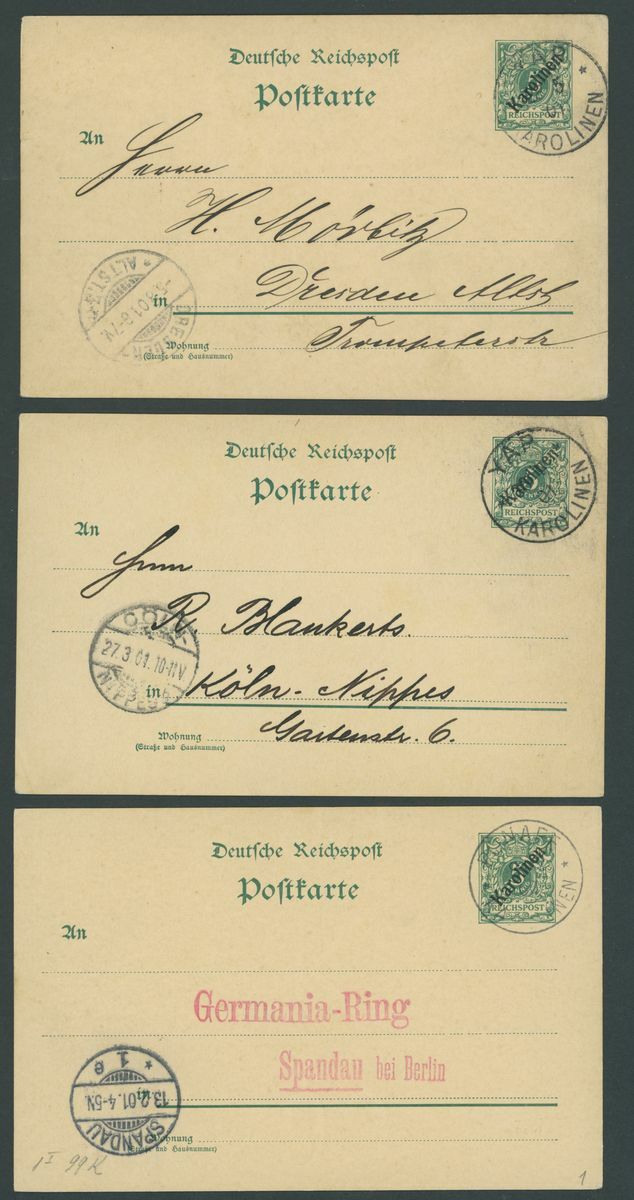 Deutsche Reichspost
Postkarte
Karolinen
REICHSPOST
YAP
KAROLINEN
An
Herrn
H. Mörbitz
in Dresden Altst
Trompeterstr
Wohnung
(Straße und Hausnummer)
DRESDEN
ALTST.
01 8-7N
Deutsche Reichspost
Postkarte
Karolinen
REICHSPOST
YAP
KAROLINEN
An
Herrn
R. Blankerts.
in Köln-Nippes
Gartenstr. 6.
Wohnung
(Straße und Hausnummer)
CÖLN-
27.3.01.10-11V
NIPPES
Deutsche Reichspost
Postkarte
Karolinen
REICHSPOST
PONAPE
An
Germania-Ring
Spandau bei Berlin
in
Wohnung
(Straße und Hausnummer)
SPANDAU
13.2.01.4-5N.
* 1 e
99K
1